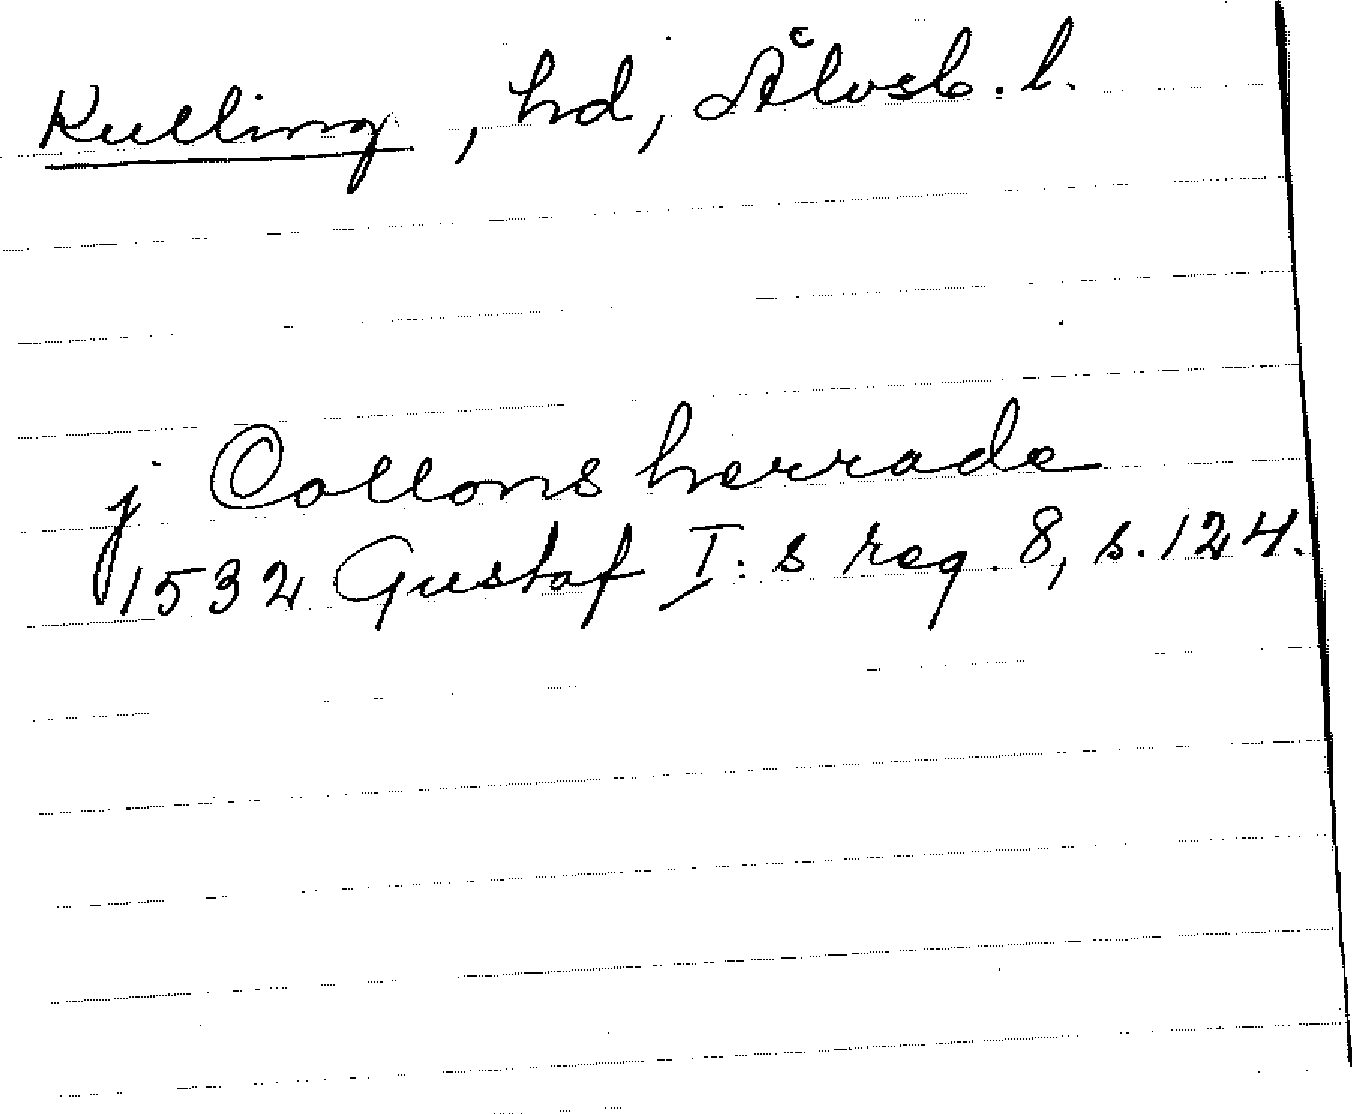 Kulling, hd, Älvsb. l.
j Collons herrade
1532 Gustaf I:s reg. 8, s. 124.